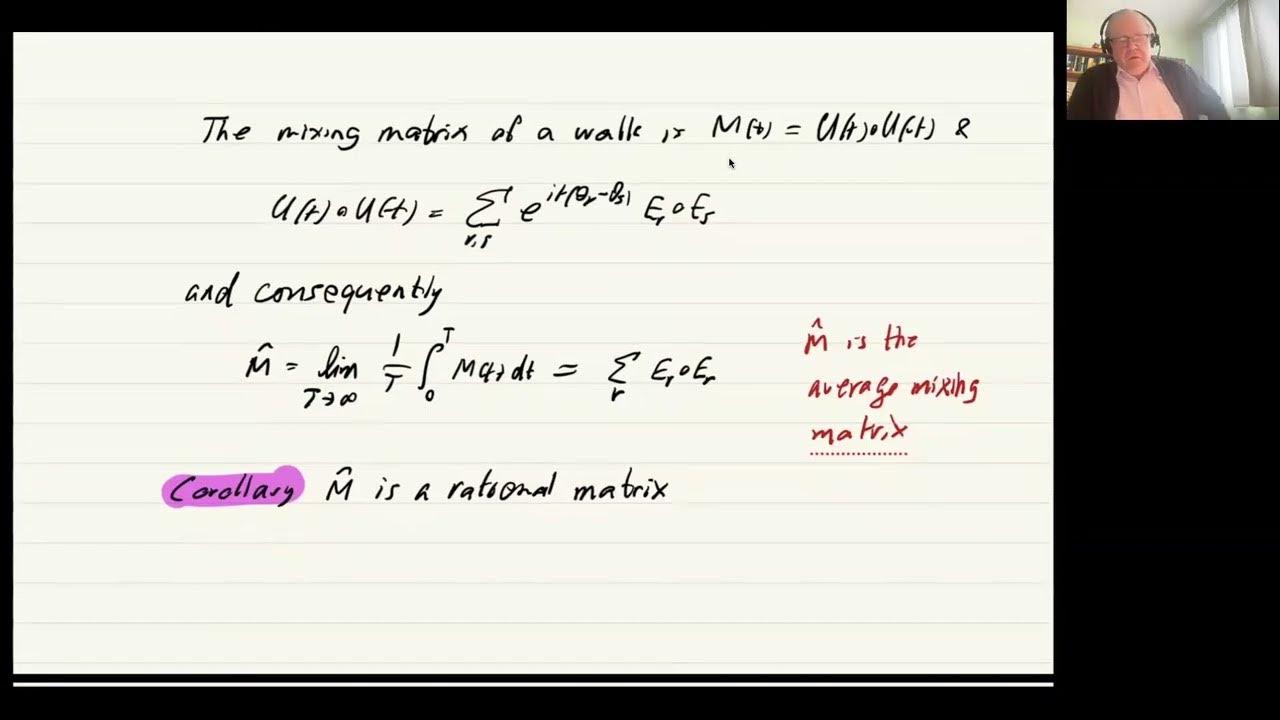 The mixing matrix of a walk is M(t) = U(t)∘U(-t) &
U(t)∘U(-t) = ∑_{r,s} e^{it(θ_r-θ_s)} E_r∘E_s
and consequently
M̂ = lim_{T→∞} 1/T ∫_0^T M(t) dt = ∑_r E_r∘E_r
M̂ is the
average mixing
matrix
Corollary M̂ is a rational matrix